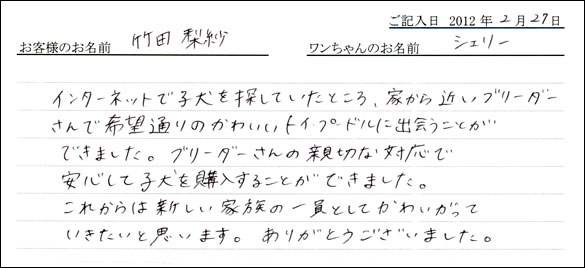 ご記入日 2012年2月27日
お客様のお名前 竹田 梨紗 ワンちゃんのお名前 シェリー
インターネットで子犬を探していたところ、家から近いブリーダー
さんで希望通りのかわいいトイ・プードルに出会うことが
できました。ブリーダーさんの親切な対応で
安心して子犬を購入することができました。
これからは新しい家族の一員としてかわいがって
いきたいと思います。ありがとうございました。